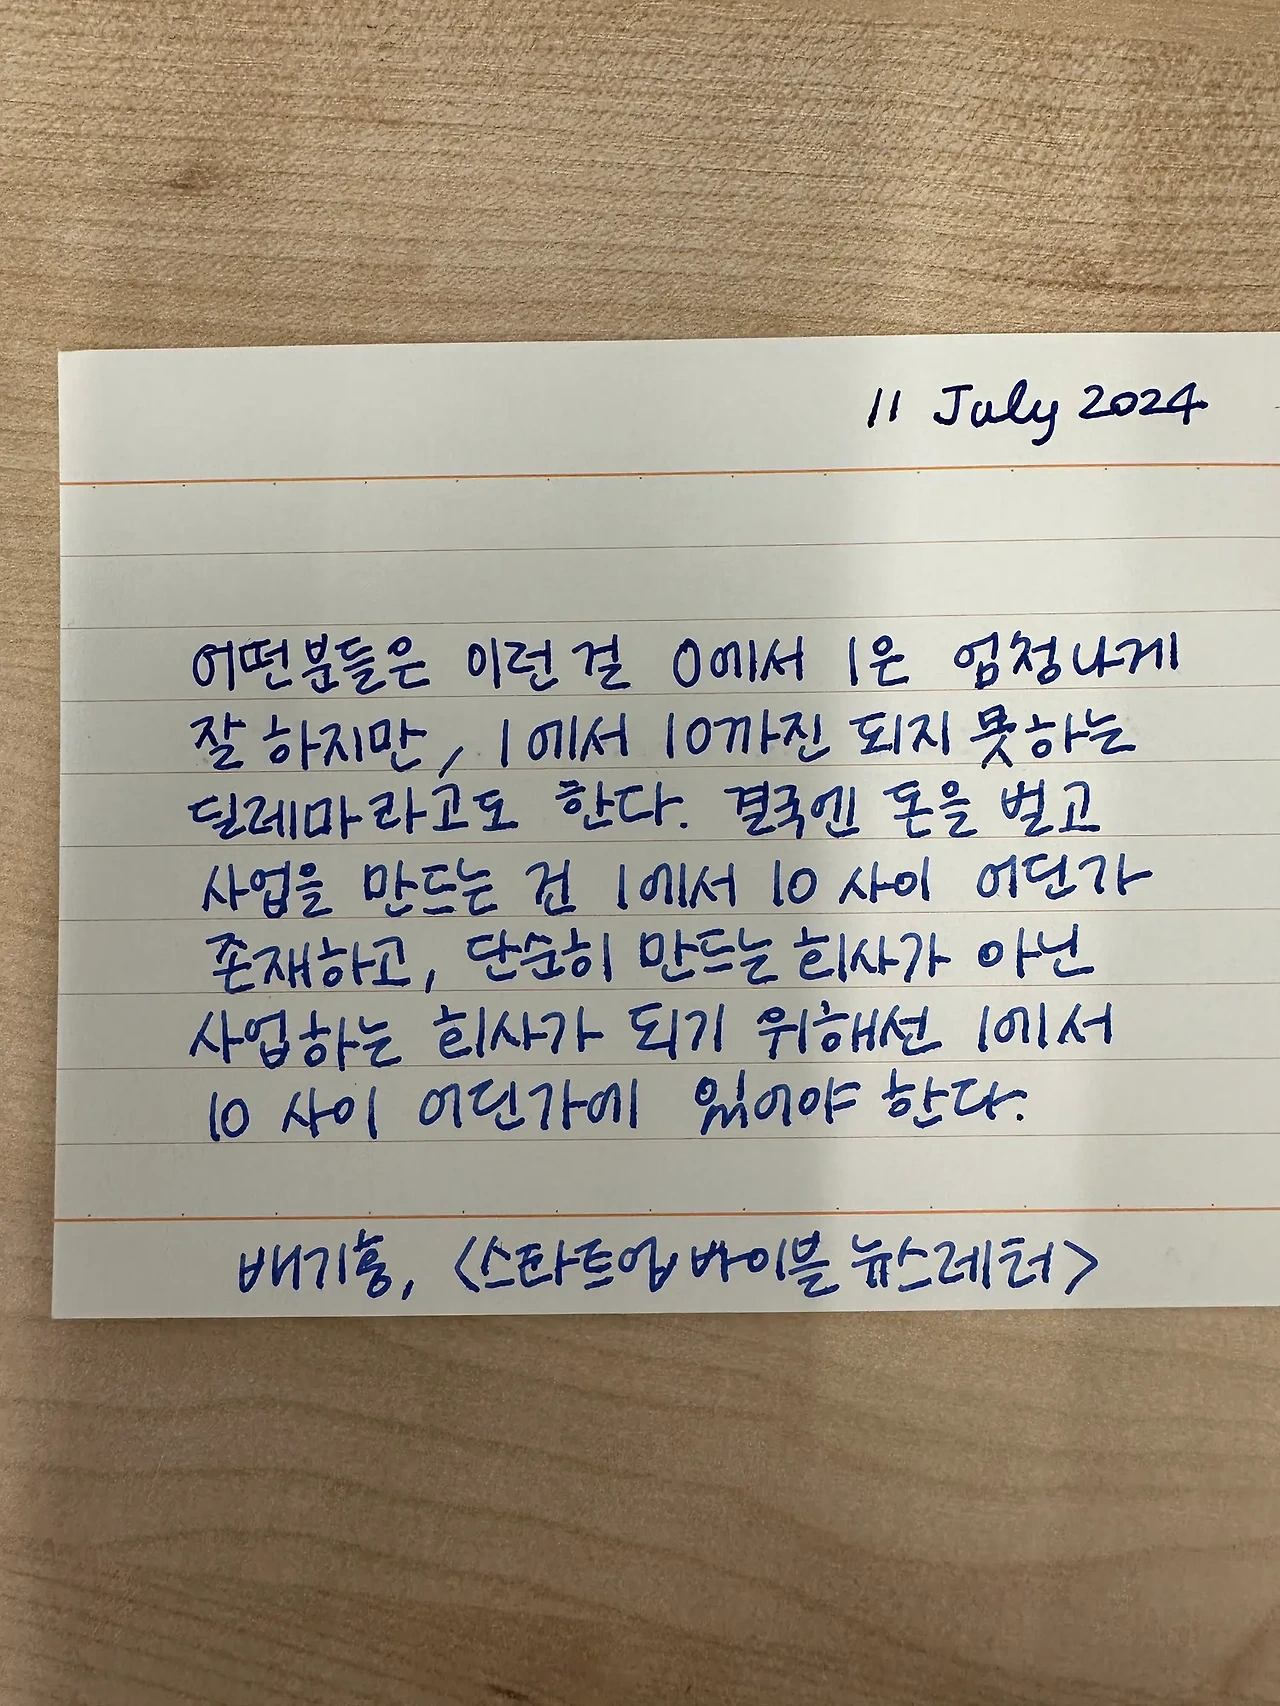 11 July 2024
어떤분들은 이런걸 0에서 1은 엄청나게
잘하지만, 1에서 10까진 되지 못하는
딜레마라고도 한다. 결국엔 돈을 벌고
사업을 만드는 건 1에서 10 사이 어딘가
존재하고, 단순히 만드는 회사가 아닌
사업하는 회사가 되기 위해선 1에서
10 사이 어딘가에 있어야 한다.
배기홍, <스타트업 바이블 뉴스레터>